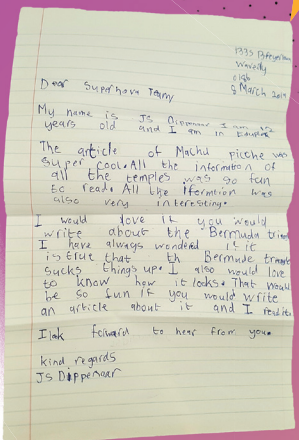 Waverley
0186
8 March 2019
Dear Supernova Team
My name is JS Dippenaar I am
years old and I am in
The article of Machu picche was
super cool. All the information of
all the temples was so fun
to read. All the iformtion was
also very interesting.
I would love it if you would
write about the Bermuda
I have always wondered if it
is true that th Bermude
sucks things up. I also would love
to know how it looks. That would
be so fun if you would write
an article about it and I
I lok foward to hear from you.
kind regards
JS Dippenaar